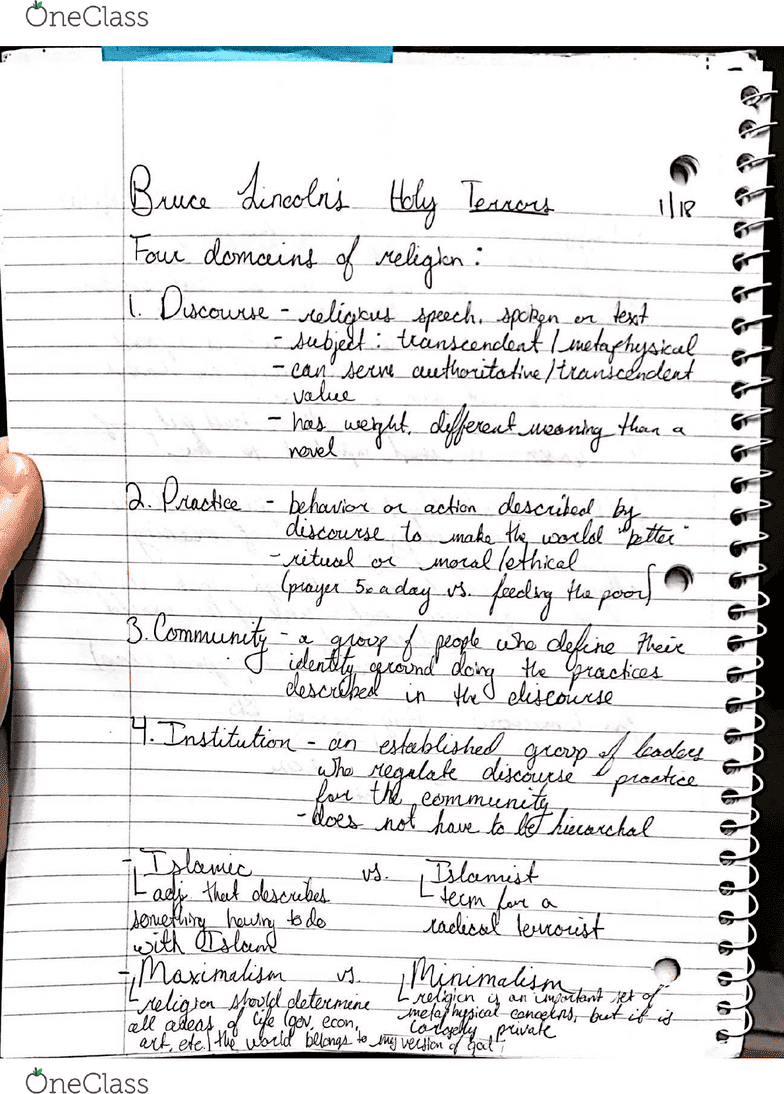 OneClass
Bruce Lincoln's Holy Terrors 1/18
Four domains of religion:
1. Discourse - religious speech, spoken or text
- subject: transcendent/metaphysical
- can serve authoritative/transcendent
value
- has weight, different meaning than a
novel
2. Practice - behavior or action described by
discourse to make the world "better"
- ritual or moral/ethical
(prayer 5x a day vs. feeding the poor)
3. Community - a group of people who define their
identity around doing the practices
described in the discourse
4. Institution - an established group of leaders
who regulate discourse practice
for the community
- does not have to be hierarchal
- Islamic vs. Islamist
adj that describes term for a
something having to do radical terrorist
with Islam
- Maximalism vs. Minimalism
religion should determine religion is an important set of
all areas of life (gov, econ, metaphysical concerns, but it is
art, etc.) "the world belongs to my version of god" largely private
OneClass